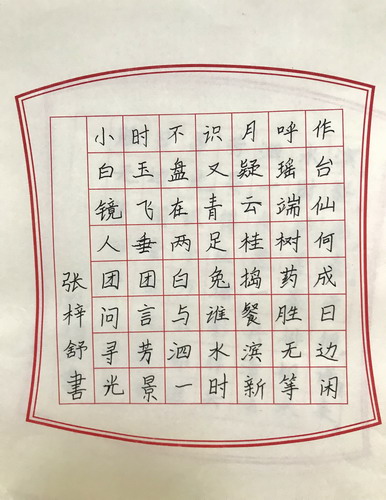 小时不识月呼作
白玉盘又疑瑶台
镜飞在青云端仙
人垂两足桂树何
团团白兔捣药成
问言与谁餐胜日
寻芳泗水滨无边
光景一时新等闲
张梓舒書